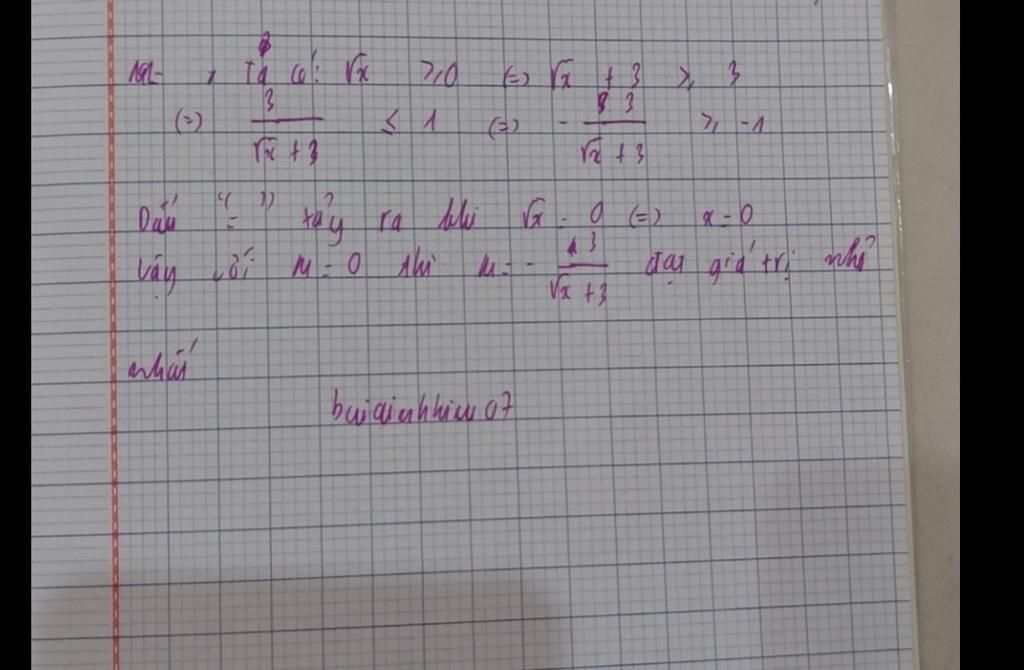 , Ta có: √x ⩾ 0 (=) √x + 3 ⩾ 3
(=) 3/(√x + 3) ≤ 1 (=) - 3/(√x + 3) ⩾ -1
Dấu "=" xảy ra khi √x = 0 (=) x = 0
Vậy với M = 0 thì M = - 3/(√x + 3) đạt giá trị nhỏ
nhất
buidinhhieu07